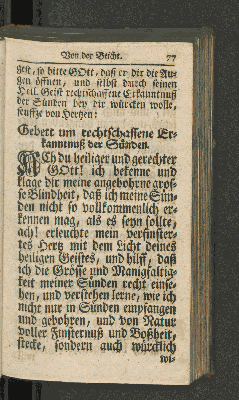 Von der Beicht. 77
gest, so bitte GOtt, daß er dir die Au-
gen öffnen, und selbst durch seinen
Heil. Geist rechtschaffene Erkanntnuß
der Sünden bey dir würcken wolle,
seuffze von Hertzen:
Gebett um rechtschaffene Er-
kanntnuß der Sünden.
ACh du heiliger und gerechter
GOtt! ich bekenne und
klage dir meine angebohrne gros-
se Blindheit, daß ich meine Sün-
den nicht so vollkommentlich er-
kennen mag, als es seyn sollte,
ach! erleuchte mein verfinster-
tes Hertz mit dem Licht deines
heiligen Geistes, und hilff, daß
ich die Grösse und Manigfaltig-
keit meiner Sünden recht einse-
hen, und verstehen lerne, wie ich
nicht nur in Sünden empfangen
und gebohren, und von Natur
voller Finsternuß und Boßheit,
stecke, sondern auch würcklich
wi-